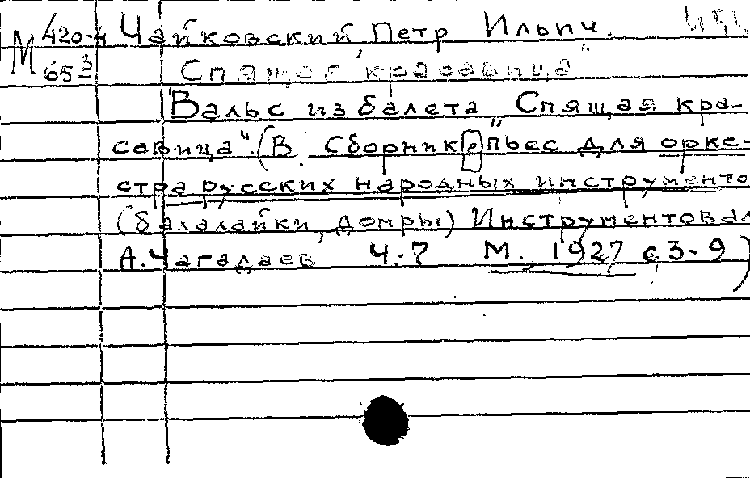 М 420-4 Чайковский, Петр Ильич.
65 3 "Спящая красавица"
Вальс из балета "Спящая кра-
савица". (В Сборник е пьес для орке-
стра русских народных инструменто
(балалайки, домры) Инструментовал
А. Чагадаев Ч. 7 М. 1927 с 3-9)